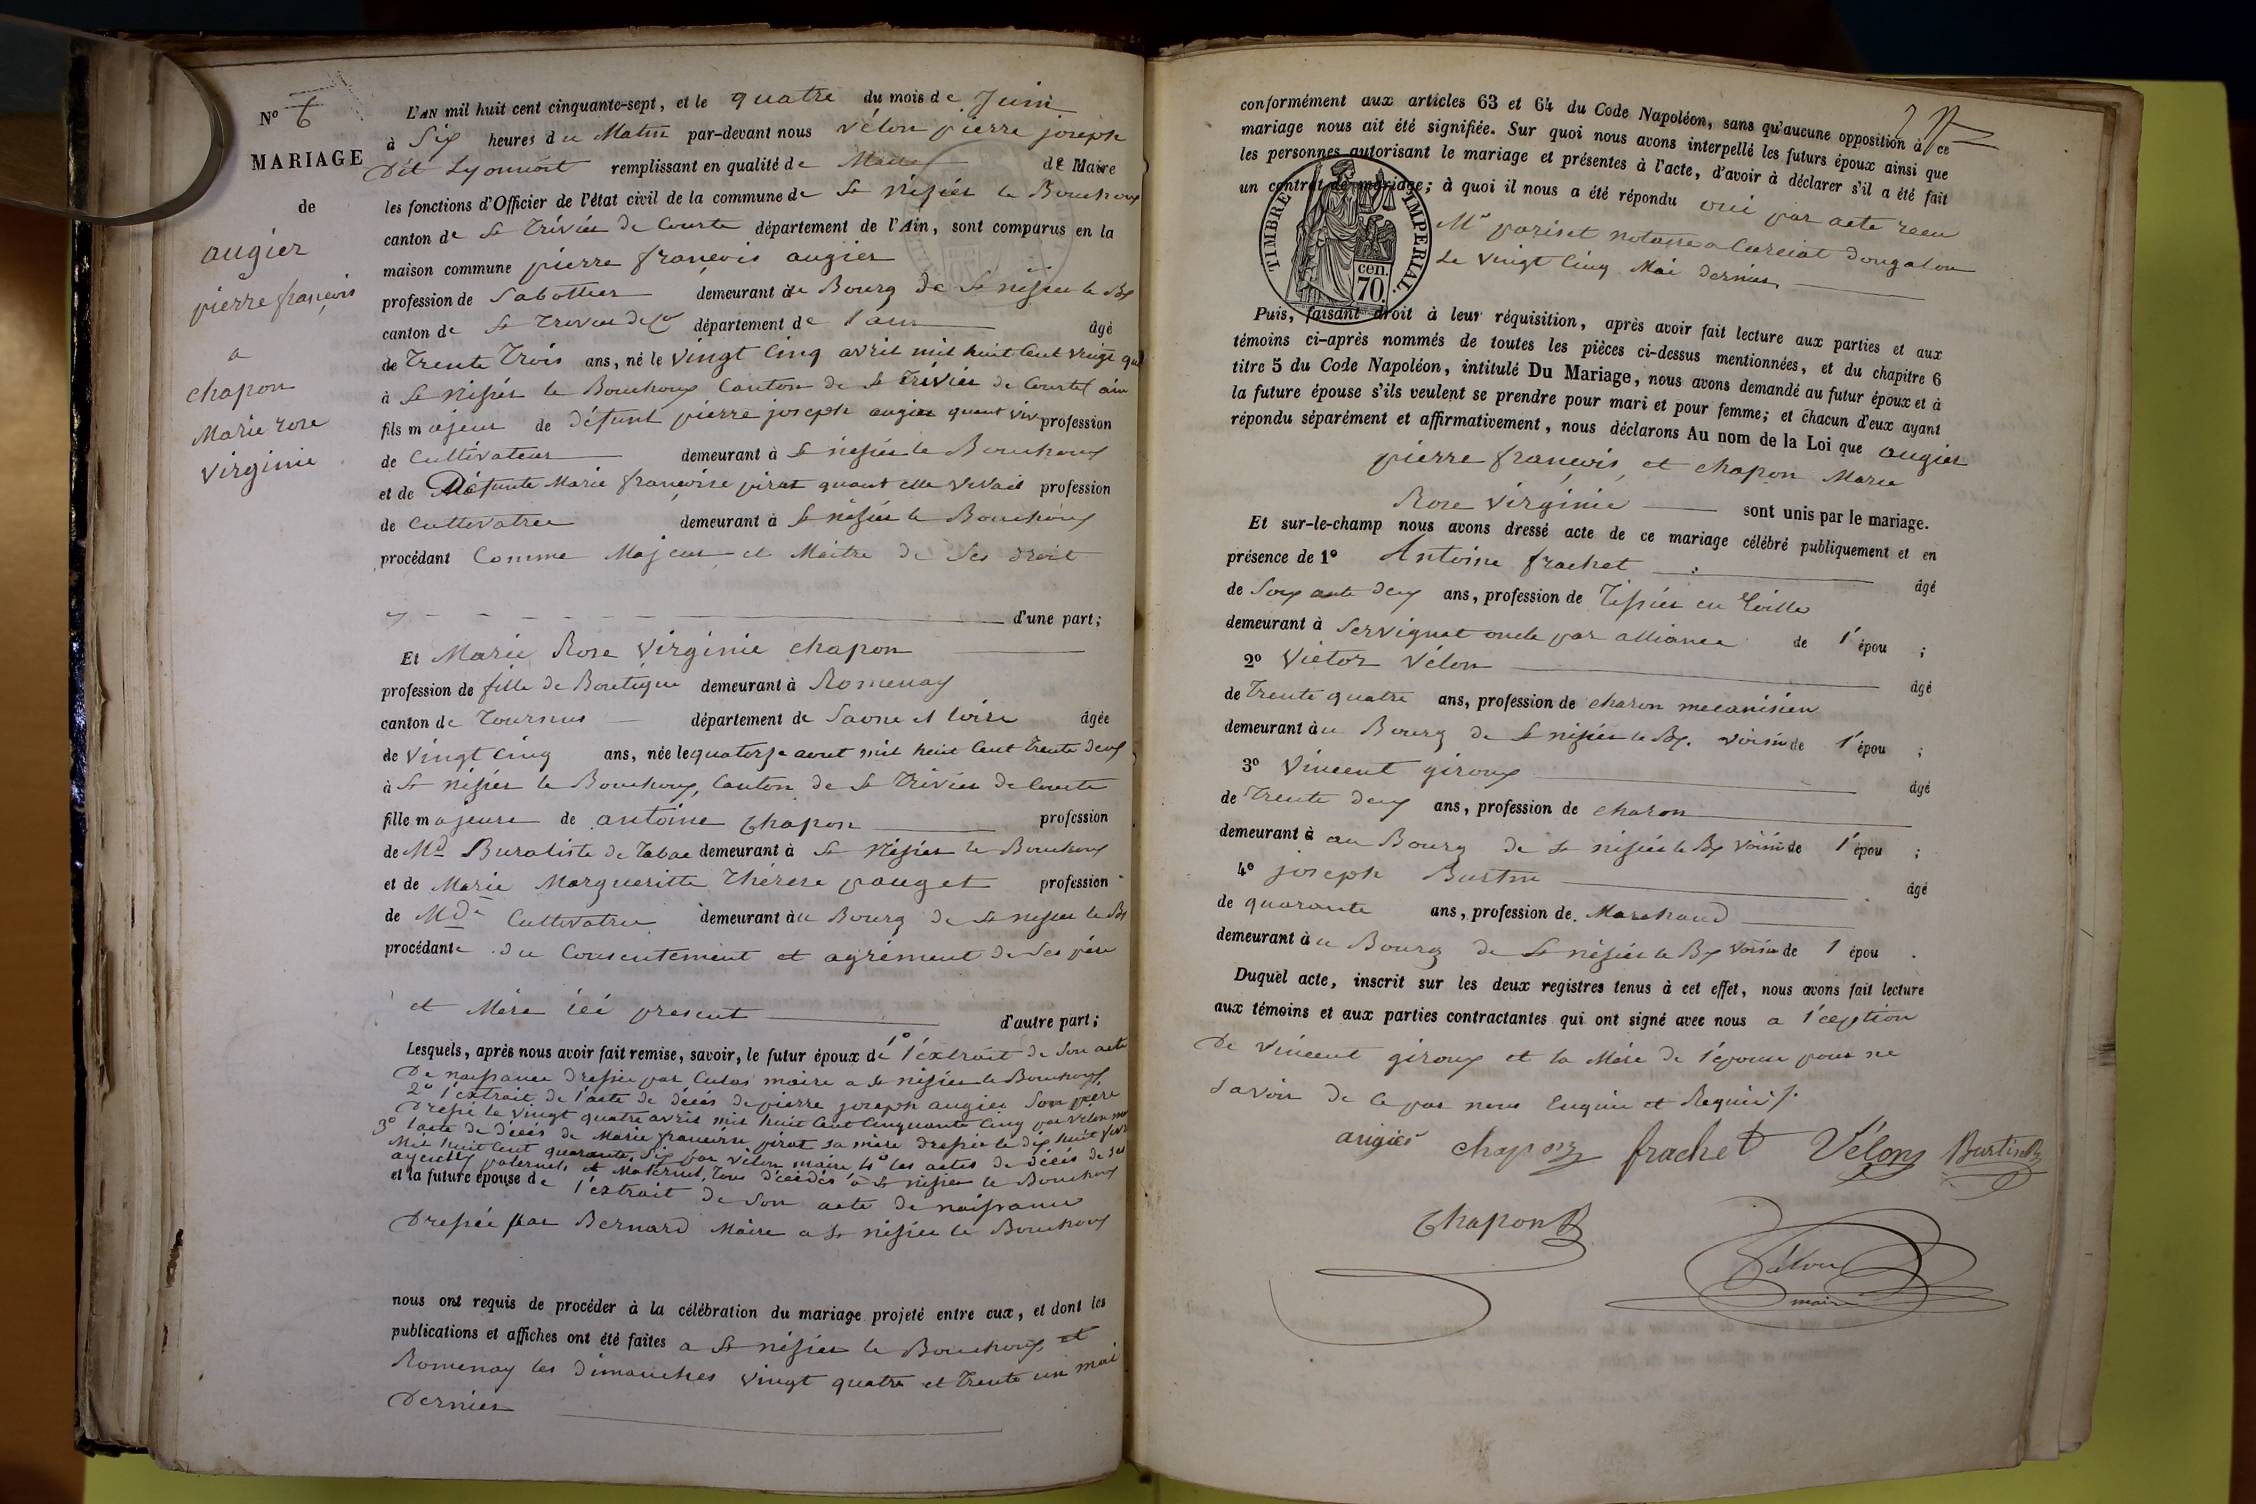 No 6
MARIAGE
de
augier
pierre françois
a
chapon
Marie rose
virginie
L'AN mil huit cent cinquante-sept, et le quatre du mois de Juin
à Six heures du Matin par-devant nous vélon pierre joseph
Dit Lyonnoit remplissant en qualité de Maire de Maire
les fonctions d'Officier de l'état civil de la commune de St nisier le Bouchoux
canton de St Trivier de Courte département de l'Ain, sont comparus en la
maison commune pierre françois augier
profession de Sabottier demeurant au Bourg de St nisier le Bx
canton de St Trivier de C département de l'ain âgé
de Trente Trois ans, né le vingt Cinq avril mil huit Cent vingt qu
à St nisier le Bouchoux Canton de St Trivier de Courtes ain
fils majeur de défunt pierre joseph augier quant viv profession
de Cultivateur demeurant à St nisier le Bouchoux
et de Défunte Marie françoise pirat quant elle vivait profession
de Cultivatrice demeurant à St nisier le Bouchoux
procédant Comme Majeur et Maitre de Ses droit
d'une part;
Et Marie Rose Virginie chapon
profession de fille de Boutique demeurant à Romenay
canton de Tournus département de Saone et loire âgée
de vingt Cinq ans, née le quatorze aout mil huit Cent Trente deux
à St nisier le Bouchoux, Canton de St Trivier de Courte
fille majeure de antoine Chapon profession
de Md Buraliste de Tabac demeurant à St Nisier le Bouchoux
et de Marie Margueritte Thérèse pauget profession
de Mde Cultivatrice demeurant au Bourg de St nisier le Bx
procédante du Consentement et agrément de Ses père
et Mère ici present d'autre part;
Lesquels, après nous avoir fait remise, savoir, le futur époux de 1o l'éxtrait de Son acte
De naissance dressée par Cutas maire a St nisier le Bouchoux
2o l'éxtrait de l'acte de décés de pierre joseph augier Son père
Dressé le vingt quatre avril mil huit Cent Cinquante Cinq par Vélon m
3o l'acte de décés de Marie francoise pirat sa mère dressée le dix huit
Mil huit Cent quarante Six par vélon maire 4o les actes de décés de ses
ayeuls paternels et Maternel, Tous décédés à St nisier le Bouchoux
et la future épouse de l'éxtrait de Son acte de naissance
Dressée par Bernard Maire a St nisier le Bouchoux
nous ont requis de procéder à la célébration du mariage projeté entre eux, et dont les
publications et affiches ont été faites a St nisier le Bouchoux et
Romenay les dimanches vingt quatre et Trente un mai
Dernier
conformément aux articles 63 et 64 du Code Napoléon, sans qu'aucune opposition à ce
mariage nous ait été signifiée. Sur quoi nous avons interpellé les futurs époux ainsi que
les personnes autorisant le mariage et présentes à l'acte, d'avoir à déclarer s'il a été fait
un contrat de mariage; à quoi il nous a été répondu oui par acte recu
Mr pariset notaire a Curciat dongalon
Le vingt Cinq Mai dernier
TIMBRE IMPERIAL.
70. cen.
Puis, faisant droit à leur réquisition, après avoir fait lecture aux parties et aux
témoins ci-après nommés de toutes les pièces ci-dessus mentionnées, et du chapitre 6
titre 5 du Code Napoléon, intitulé Du Mariage, nous avons demandé au futur époux et à
la future épouse s'ils veulent se prendre pour mari et pour femme; et chacun d'eux ayant
répondu séparément et affirmativement, nous déclarons Au nom de la Loi que augier
pierre françois, et chapon Marie
Rose virginie sont unis par le mariage.
Et sur-le-champ nous avons dressé acte de ce mariage célébré publiquement et en
présence de 1o Antoine frachet âgé
de Soixante deux ans, profession de Tissier en Toille
demeurant à Servignat oncle par alliance de l'épou ;
2o Victor Vélon âgé
de Trente quatre ans, profession de charon mecanisien
demeurant au Bourg de St nisier le Bx. voisin de l'épou ;
3o Vincent giroux âgé
de Trente deux ans, profession de charon
demeurant à au Bourg de St nisier le Bx voisin de l'épou ;
4o joseph Burtin âgé
de quarante ans, profession de Marchand
demeurant au Bourg de St nisier le Bx voisin de l épou .
Duquel acte, inscrit sur les deux registres tenus à cet effet, nous avons fait lecture
aux témoins et aux parties contractantes qui ont signé avec nous a l'ception
De vincent giroux et la Mère de l'épouse pour ne
Savoir de Ce par nous Enquis et Requis /.
augier chapon frachet Vélon Burtin
Chapon
Vélon
maire